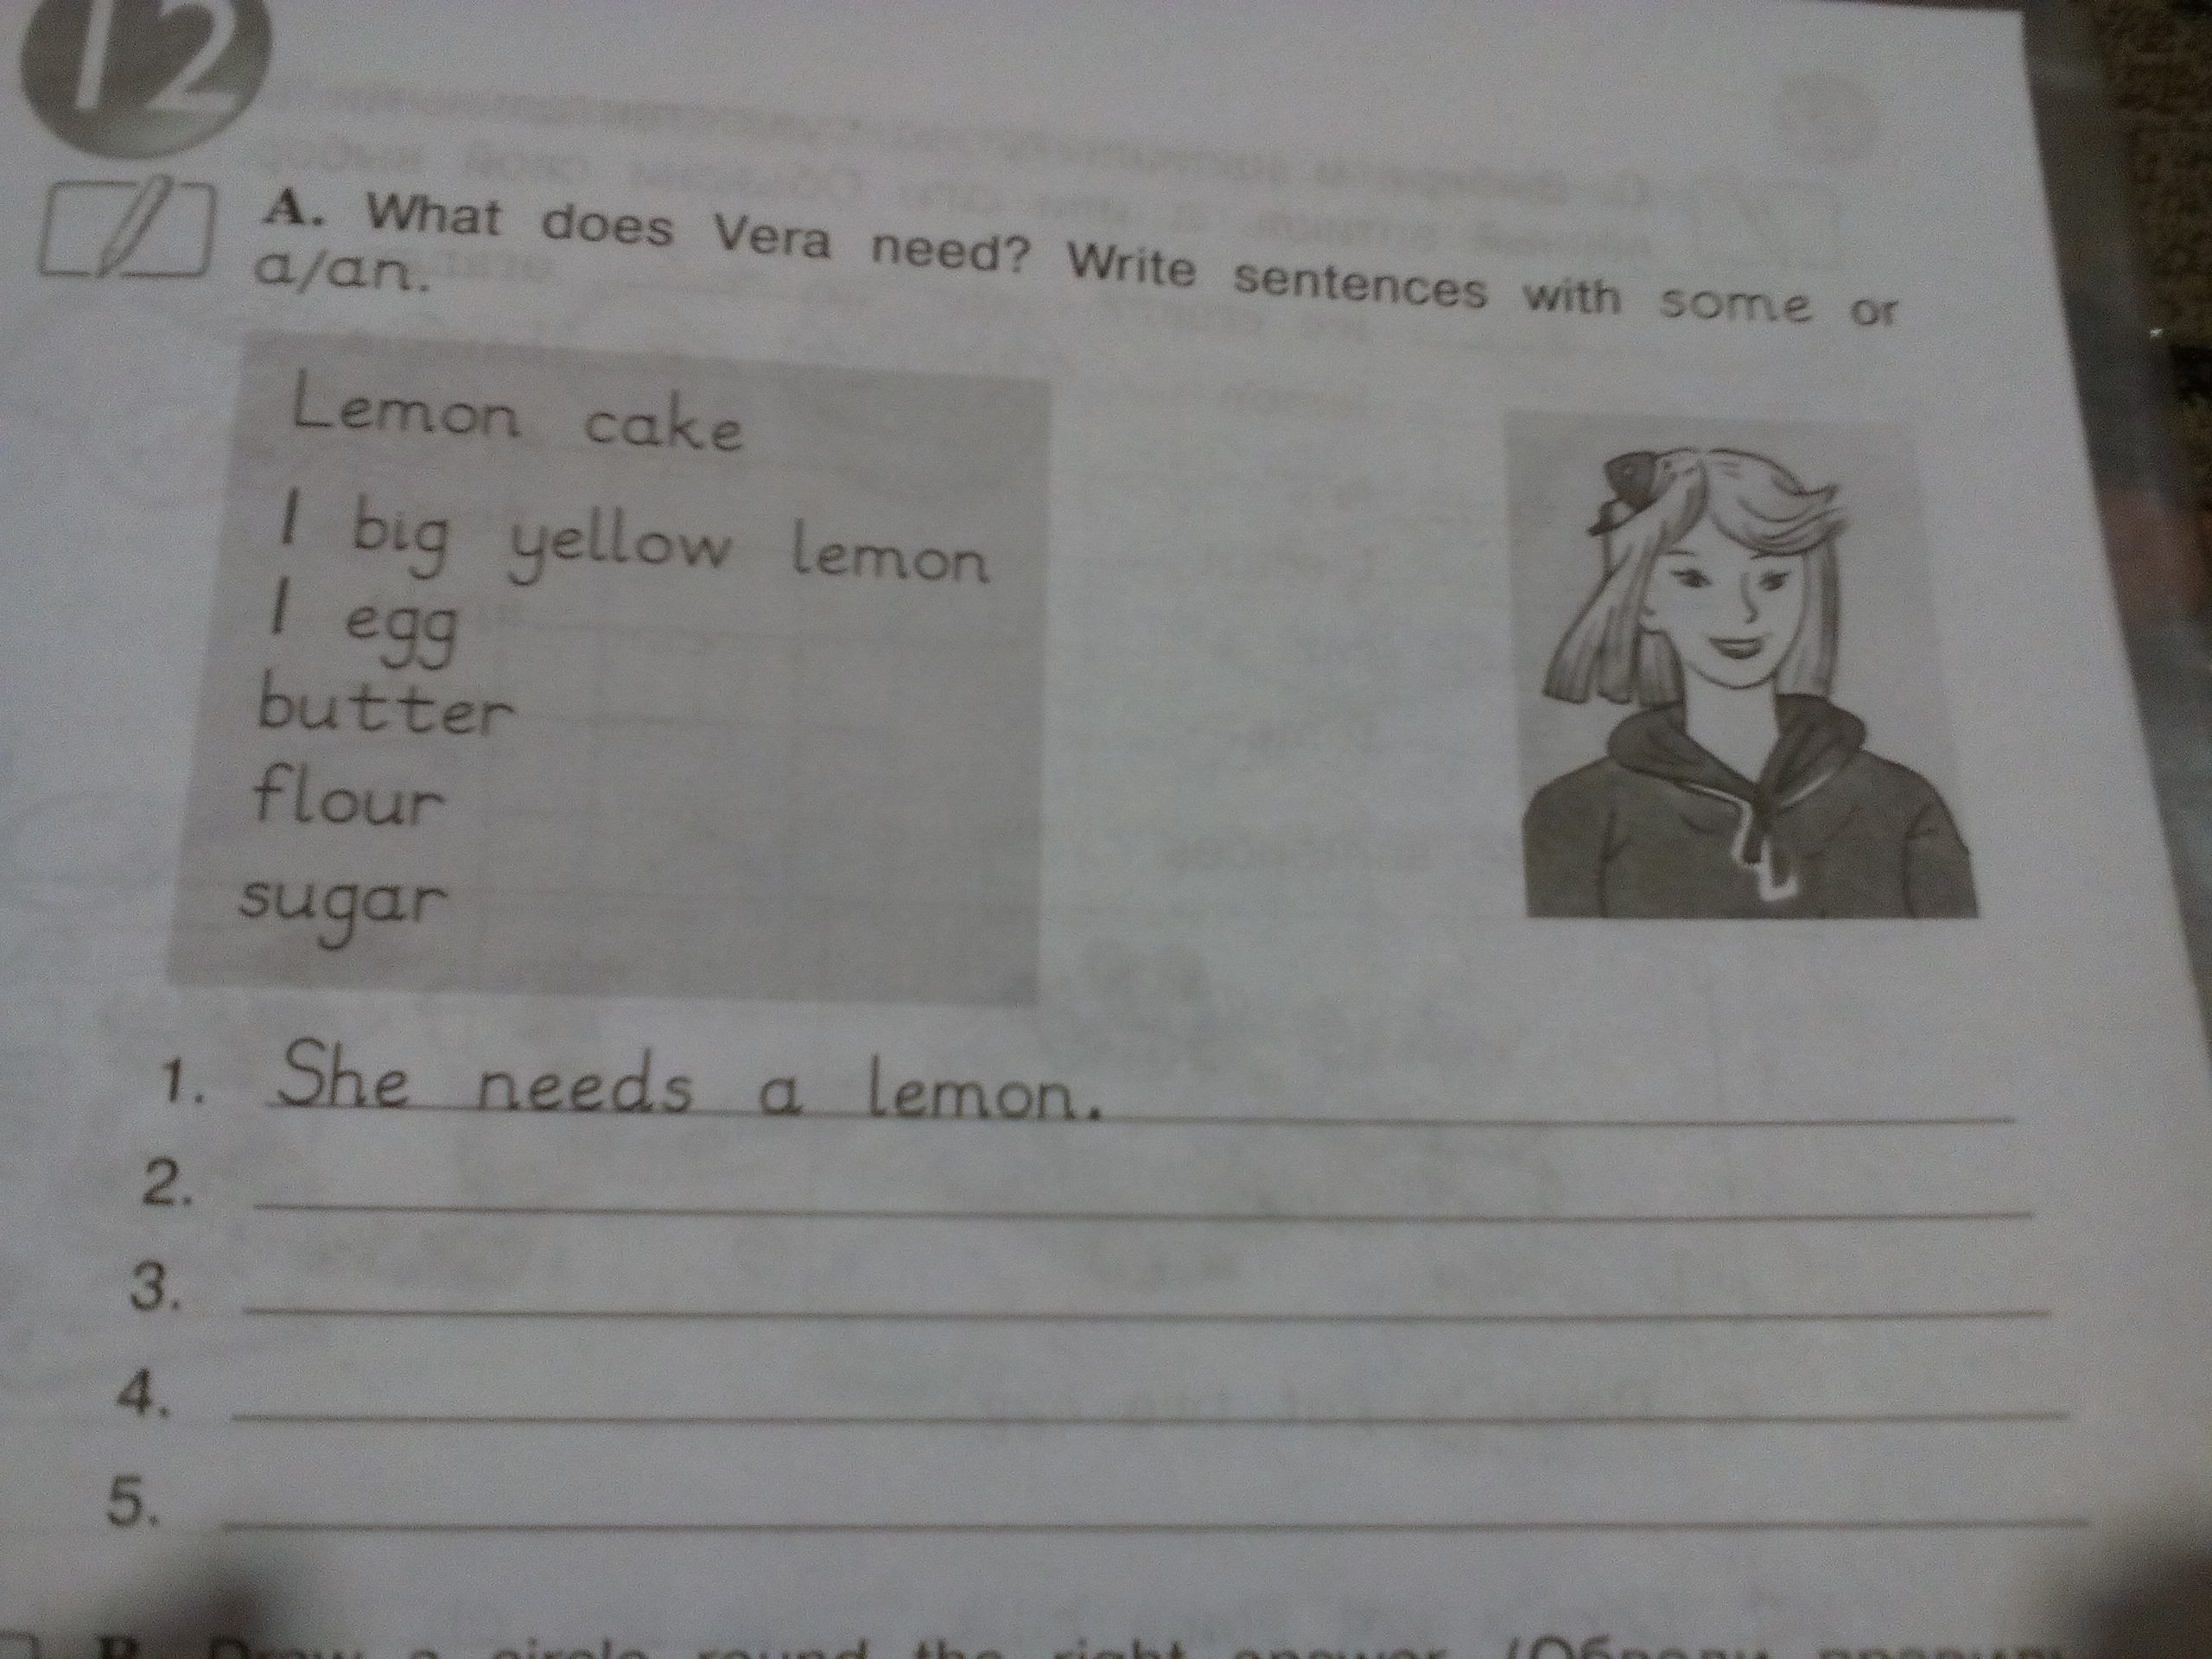 12
A. What does Vera need? Write sentences with some or
a/an.
Lemon cake
1 big yellow lemon
1 egg
butter
flour
sugar
1. She needs a lemon.
2.
3.
4.
5.
B. Draw a circle round the right answer. (Обведи